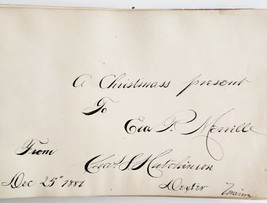 A Christmass present
To
Eva P. Merrille
From
Chas S Hutchinson
Dec 25" 1881
Dexter Maine